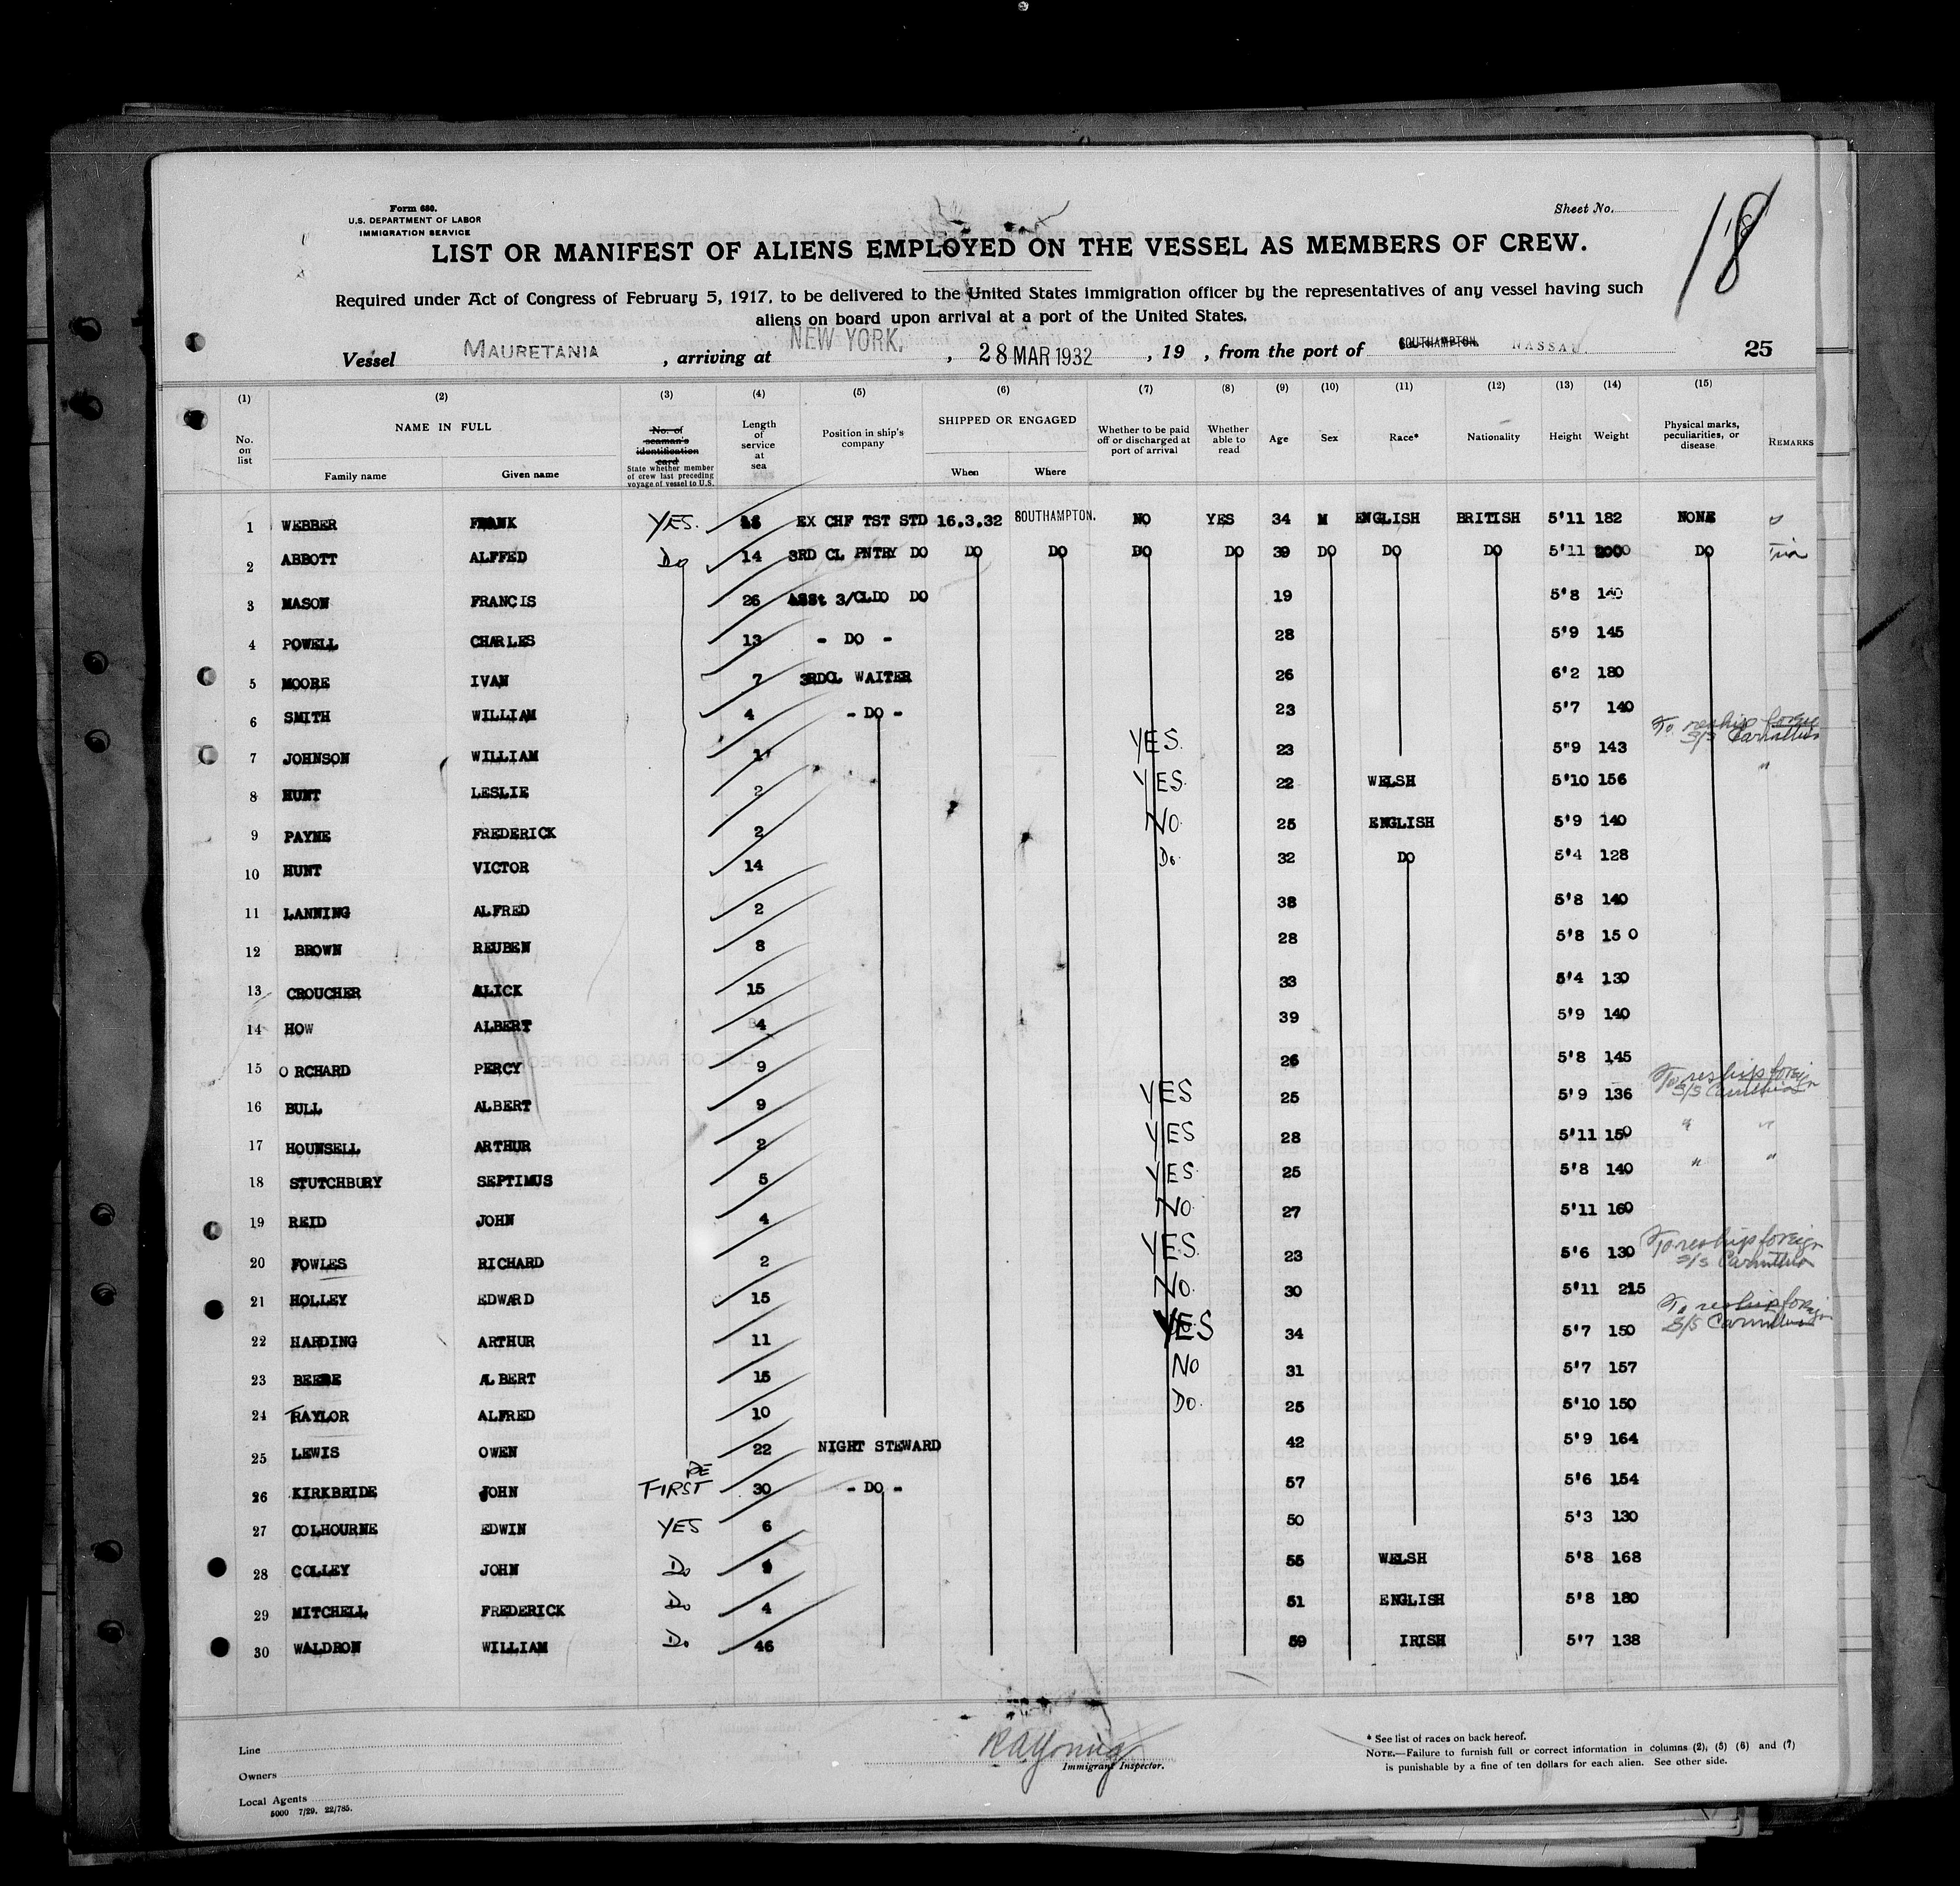 Form 680.
U.S. DEPARTMENT OF LABOR
IMMIGRATION SERVICE
Sheet No.
18
LIST OR MANIFEST OF ALIENS EMPLOYED ON THE VESSEL AS MEMBERS OF CREW.
Required under Act of Congress of February 5, 1917, to be delivered to the United States immigration officer by the representatives of any vessel having such
aliens on board upon arrival at a port of the United States.
Vessel MAURETANIA, arriving at NEW YORK., 28 MAR 1932, 19 , from the port of SOUTHAMPTON. NASSAU. 25
(1) (2) (3) (4) (5) (6) (7) (8) (9) (10) (11) (12) (13) (14) (15)
No. on list
NAME IN FULL
Family name Given name
No. of seaman's identification card
State whether member of crew last preceding voyage of vessel to U.S.
Length of service at sea
Position in ship's company
SHIPPED OR ENGAGED
When Where
Whether to be paid off or discharged at port of arrival
Whether able to read
Age Sex Race* Nationality Height Weight
Physical marks, peculiarities, or disease
REMARKS
1 WEBBER FRANK YES. EX CHF TST STD 16.3.32 SOUTHAMPTON. NO YES 34 M ENGLISH BRITISH 5'11 182 NONE
2 ABBOTT ALFFED Do 14 3RD CL PNTRY DO DO DO DO DO 39 DO DO DO 5'11 200 DO
3 MASON FRANCIS 26 ASSt 3/CLDO DO 19 5'8 140
4 POWELL CHARLES 13 - DO - 28 5'9 145
5 MOORE IVAN 7 3RDCL WAITER 26 6'2 180
6 SMITH WILLIAM 4 - DO - 23 5'7 140
7 JOHNSON WILLIAM 1 YES. 23 5"9 143 To reship foreign S/S Carinthia
8 HUNT LESLIE 2 YES. 22 WELSH 5'10 156 "
9 PAYNE FREDERICK 2 NO. 25 ENGLISH 5'9 140
10 HUNT VICTOR 14 Do. 32 DO 5'4 128
11 LANNING ALFRED 2 38 5'8 140
12 BROWN REUBEN 8 28 5'8 150
13 CROUCHER ALICK 15 33 5'4 130
14 HOW ALBERT 4 39 5'9 140
15 ORCHARD PERCY 9 26 5'8 145
16 BULL ALBERT 9 YES 25 5'9 136 To reship foreign S/S Carinthia
17 HOUNSELL ARTHUR 2 YES 28 5'11 150 " "
18 STUTCHBURY SEPTIMUS 5 YES. 25 5'8 140 " "
19 REID JOHN 4 NO. 27 5'11 160
20 FOWLES RICHARD 2 YES. 23 5'6 130 To reship foreign S/S Carinthia
21 HOLLEY EDWARD 15 NO. 30 5'11 215
22 HARDING ARTHUR 11 YES 34 5'7 150 To reship foreign S/S Carinthia
23 BEERE ALBERT 15 NO 31 5'7 157
24 TAYLOR ALFRED 10 DO. 25 5'10 150
25 LEWIS OWEN 22 NIGHT STEWARD 42 5'9 164
26 KIRKBRIDE JOHN FIRST 30 - DO - 57 5'6 154
27 COLHOURNE EDWIN YES 6 50 5'3 130
28 COLLEY JOHN Do 55 WELSH 5'8 168
29 MITCHELL FREDERICK Do 4 51 ENGLISH 5'8 180
30 WALDRON WILLIAM Do 46 59 IRISH 5'7 138
Line
Owners
Local Agents
5000 7/29. 22/785.
RAYoung
Immigrant Inspector.
* See list of races on back hereof.
NOTE.—Failure to furnish full or correct information in columns (2), (5) (6) and (7)
is punishable by a fine of ten dollars for each alien. See other side.